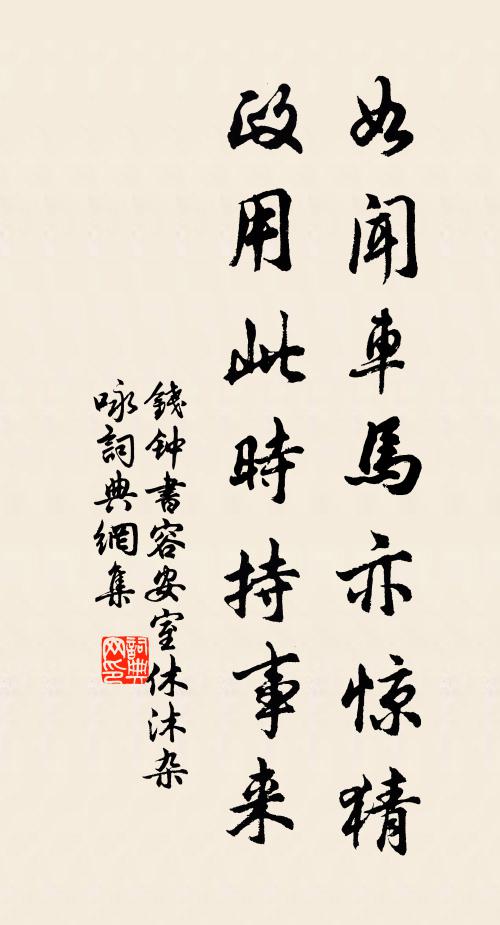 如闻車馬亦惊猜
政用此時持事来
錢钟書容安室休沐杂
咏詞典網集
詞典网印